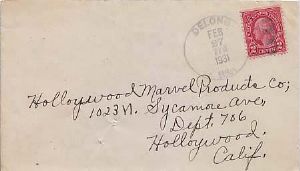 DELONG
FEB
27
1931
2 CENTS 2
Holloywood Marvel Products Co;
1023 N. Sycamore Ave,
Dept. 706
Holloywood.
Calif.